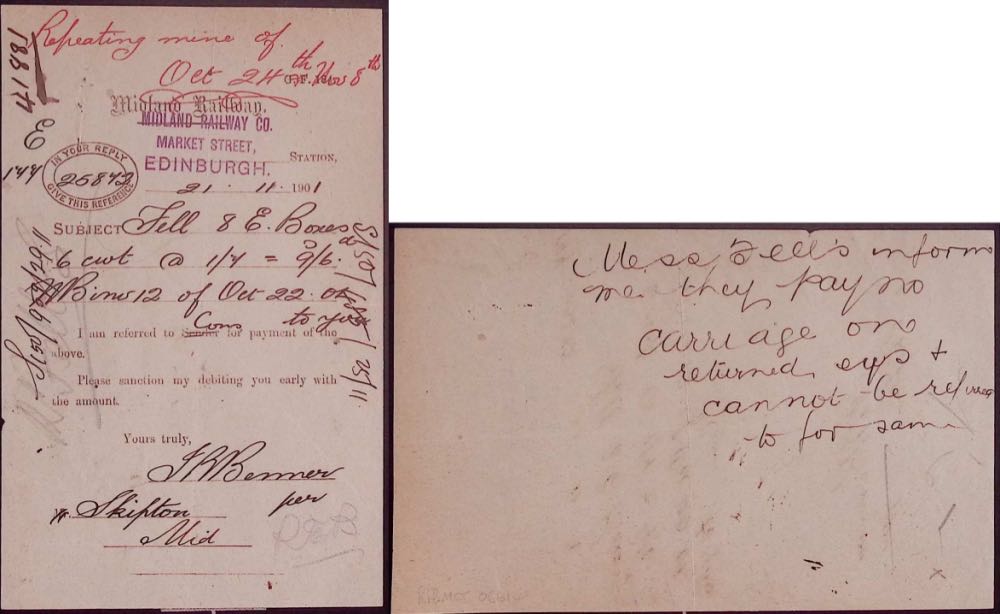 Repeating mine of
Oct 24th & Nov 8th
Midland Railway.
MIDLAND RAILWAY CO.
MARKET STREET,
EDINBURGH.
STATION,
IN YOUR REPLY
25872
GIVE THIS REFERENCE
21 . 11 . 1901
SUBJECT Fell 8 E. Boxes
6 cwt @ 1/7 = 9/6.
of Oct 22.
Cons to you
I am referred to Sender for payment of the
above.
Please sanction my debiting you early with
the amount.
Yours truly,
per
Skipton
Mid
41881
E
144
25/11
Mess Fell's inform
me they pay no
carriage on
returned eys +
cannot be referred
to for same